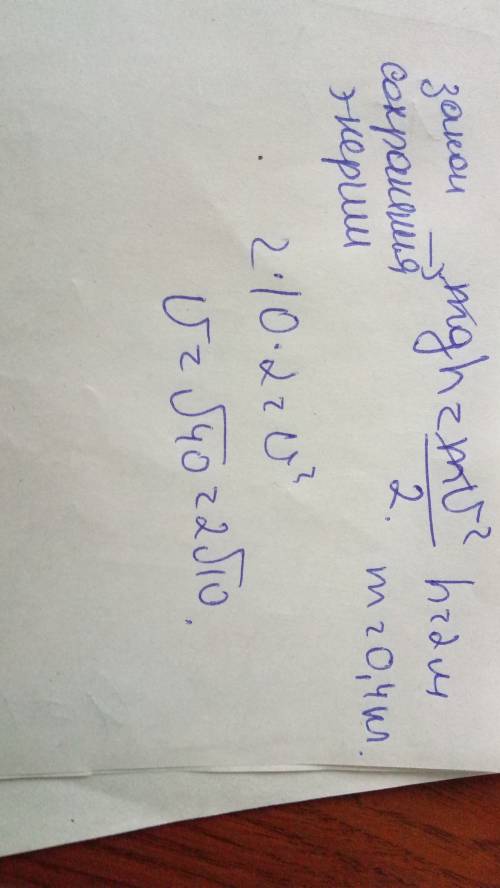 закон
сохранения
энергии
→ mgh = mv²/2. h=2м
m=0,4кг.
2·10·2=v²
v=√40=2√10.